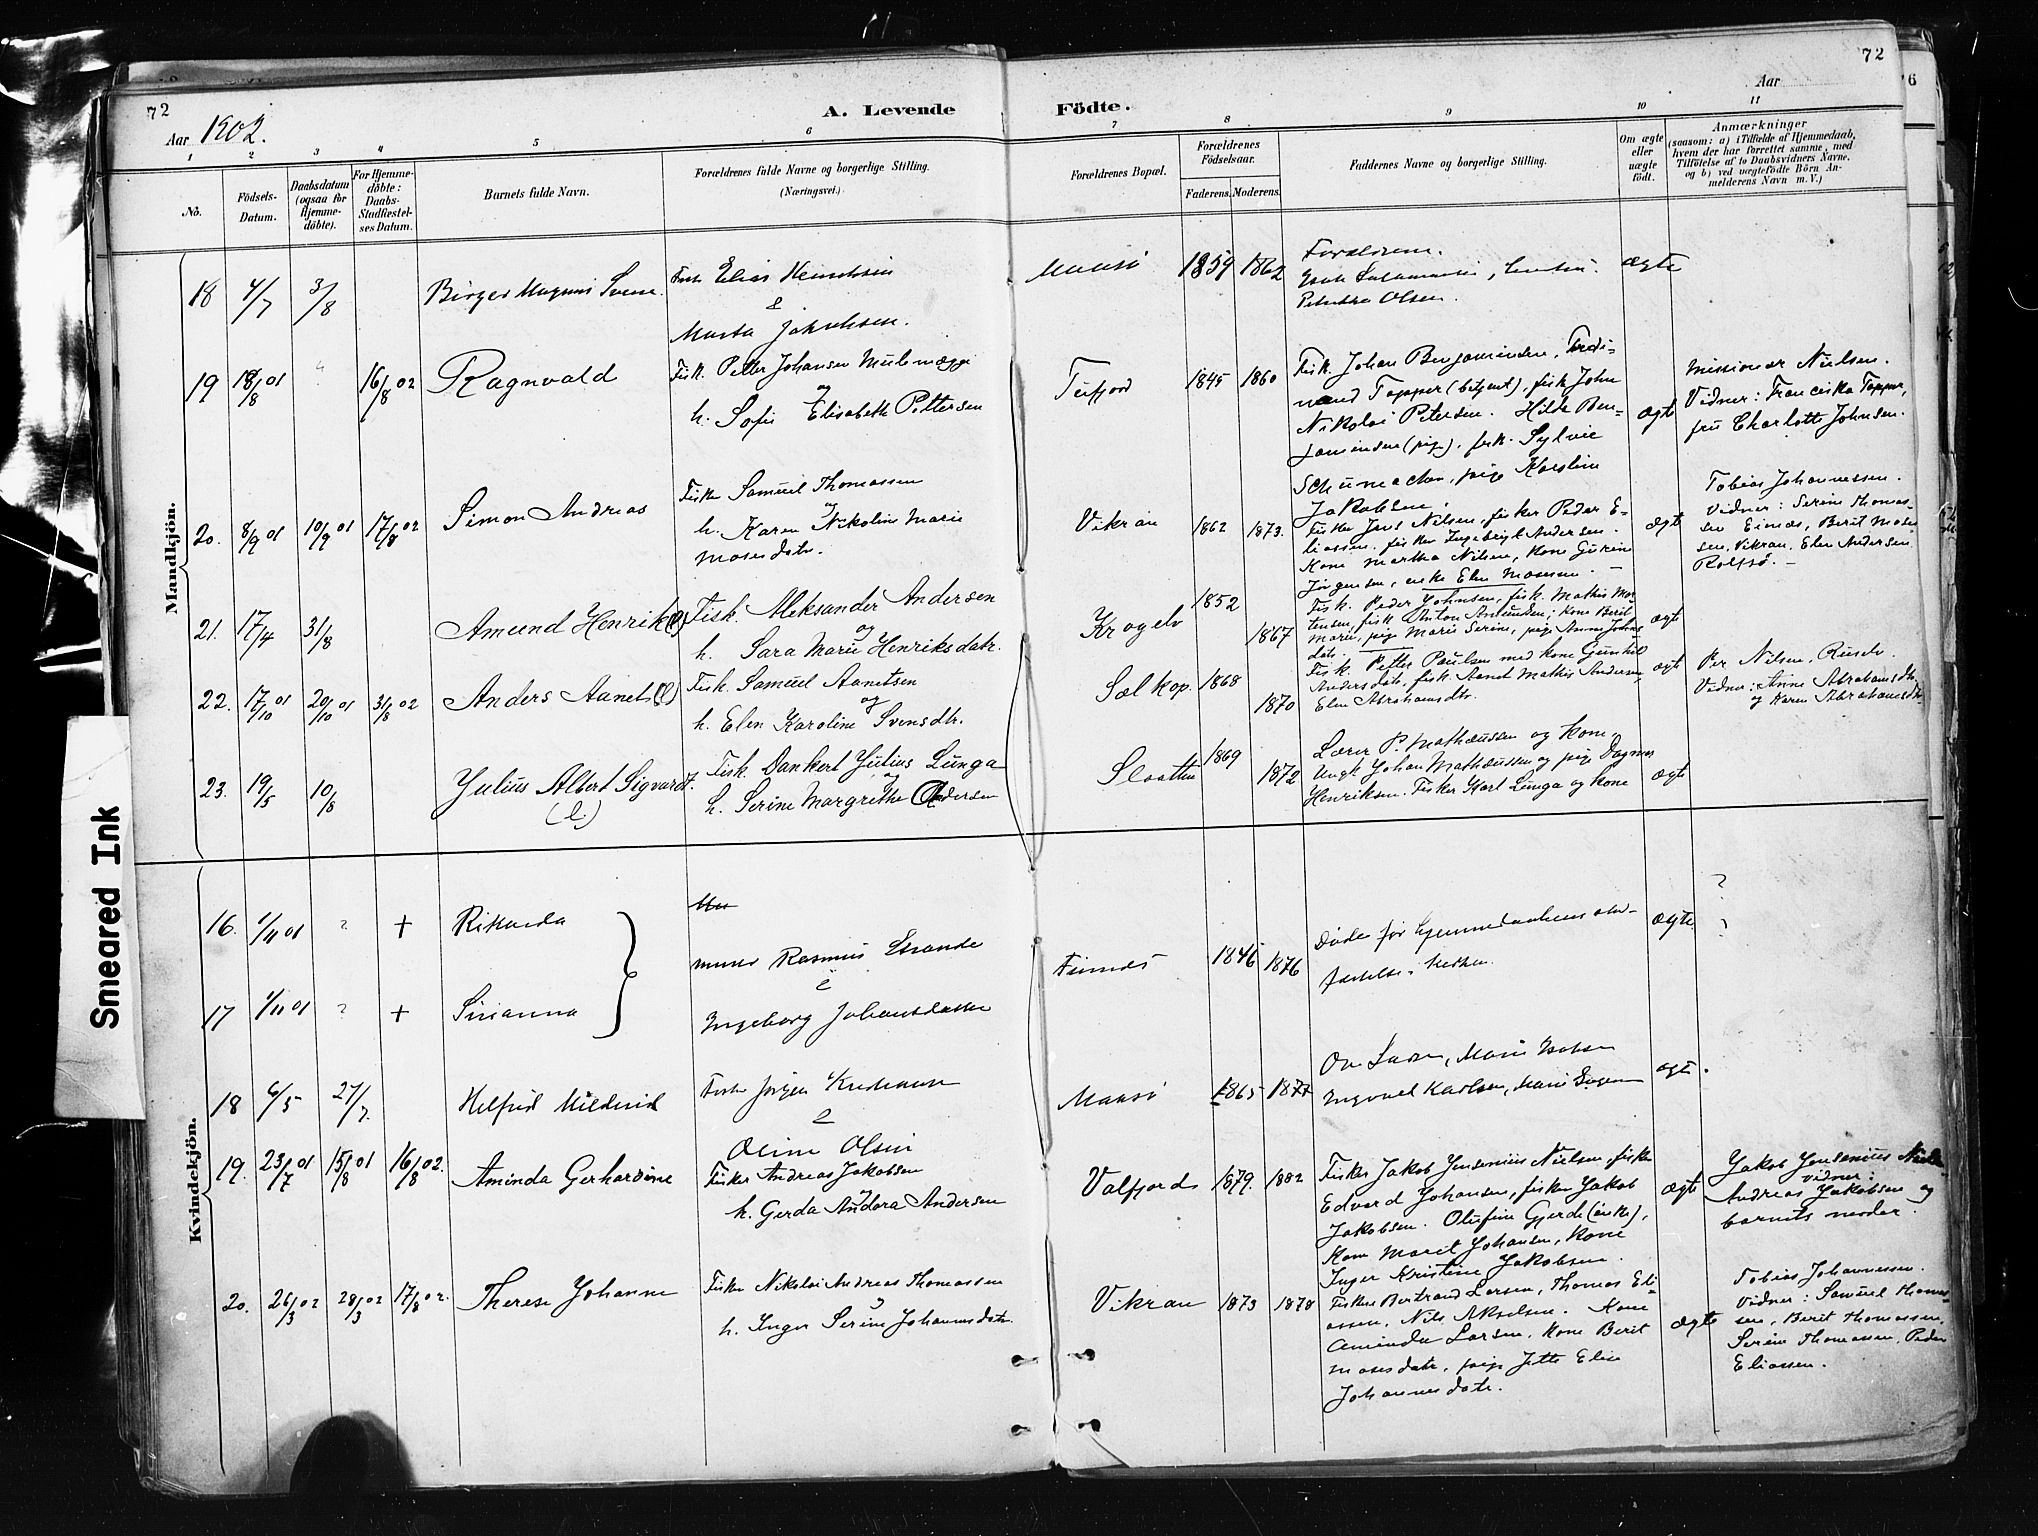 72
72
6
A. Levende Födte.
Aar 1902.
Aar
1 2 3 4 5 6 7 8 9 10 11
No.
Födsels-
Datum.
Daabsdatum
(ogsaa for
Hjemme-
döbte).
For Hjemme-
döbte:
Daabs-
Stadfæstel-
ses Datum.
Barnets fulde Navn.
Forældrenes fulde Navne og borgerlige Stilling.
(Næringsvei.)
Forældrenes Bopæl.
Forældrenes
Födselsaar.
Faderens. Moderens.
Faddernes Navne og borgerlige Stilling.
Om ægte
eller
uægte
födt.
Anmærkninger
(saasom: a) i Tilfælde af Hjemmedaab,
hvem der har forrettet samme, med
Tilföielse af to Daabsvidners Navne,
og b) ved uægtefödte Börn An-
melderens Navn m. V.)
Mandkjön.
18 4/7 3/8 Birger Magnus
Elias
&
Maasö 1859 1862
Forældrene.
Olsen.
ægte
19 18/8 01 16/8 02 Ragnvald
Fisk. Petter Johansen
og
h. Sofie Elisabeth Pettersen
Tufjord 1845 1860
Fisk. Johan Benjaminsen, Ferdi-
nand Topper (betjent), fisk John
Nikolai Petersen. Hilda Ben-
jaminsen (pige), frk. Sylvie
Schumacher, pige Karoline
Jakobsen.
ægte
Missionær Nielsen.
Vidner: Franciska Topper,
fru Charlotte Johnsen.
20. 8/9 01 10/9 01 17/8 02 Simon Andreas
Fisker Samuel Thomassen
og
h. Karen Nikoline Marie
Mosesdatr.
Vikran 1862 1873.
Fisker Jens Nilsen, fisker Peder E-
liassen. fisker Ingebrigt Andersen.
Kone Martha Nilsen, Kone Gurine
Jörgensen, enke Elen Mosesen. –
ægt
Tobias Johannessen.
Vidner: Serine Thomas-
sen Eimos, Berit Mose-
sen, Vikran, Elen Andersen
Rolfsö. –
21. 17/4 31/8 Amund Henrik (l)
Fisk. Aleksander Andersen
og
h. Sara Marie Henriksdatr.
Krogelv 1852 1867
Fisk. Peder Johnsen, fisk. Mathis Mor-
tensen, fisk Anton Amundsen; Kone Berit
Marie, pige Marie Serine, pige Anne Johns
datr.
ægte
22. 17/10 01 20/10 01 31/8 02 Anders Aanet (l)
Fisk. Samuel Aanetsen
og
h. Elen Karoline Svensdtr.
Sælkop. 1868 1870
Fisk. Petter Paulsen med Kone Gunhil
Andersdatr, fisk. Aanet Mathis Andersen,
Elen Abrahamsdtr.
ægte
Per Nilsen, Ruselv.
Vidner: Anne Abrahamsdtr.
og Karen Abrahamsdtr.
23. 19/5 10/8 Julius Albert Sigvardt.
(l.)
Fisk. Dankert Julius Lunga
og
h. Serine Margrethe Andersen
Slaatten 1869 1872
Lærer P. Mathæussen og Kone,
Ungk Johan Mathæussen og pige Dagmar
Henriksen. Fisker Karl Lunga og Kone
ægte
Kvindekjön.
16. 1/11 01 ? + Rikarda
17 1/11 01 ? + Sirianna
Rasmus Strande
&
Ingeborg Johansdatter
Finnes 1846 1876
Døde før hjemmedaabens stad-
fæstelse i kirken.
ægte
?
?
18 6/5 27/7 Helfrid Mildrid
Jörgen
&
Oline Olsen
Maasö 1865 1877
Ove Larsen, Marie
Ingvald Karlsen, Marie
ægte.
19. 23/7 01 15/8 01 16/8 02. Aminda Gerhardine
Fisker Andreas Jakobsen
og
h. Gerda Andora Andersen
Valfjord 1879. 1882
Fisker Jakob Jensenius Nielsen, fisker
Edvard Johansen, fisker Jakob
Jakobsen. Olufine Gjerde (enke),
Kone Marit Johansen, Kone
Inger Kristine Jakobsen.
ægte
Jakob Jensenius
vidner:
Andreas Jakobsen og
barnets moder.
20. 26/3 02 28/3 02 17/8 02. Therese Johanne
Fisker Nikolai Andreas Thomassen
og
h. Inger Serine Johannesdatr.
Vikran 1873 1878
Fisker Bertrand Larsen, Thomas Eli-
assen, Nils Akselsen. Kone
Aminda Larsen, Kone Berit
Mosesdatr, pige Jette Elise
Johannesdatr.
ægte
Tobias Johannessen.
Vidner: Samuel Thomas-
sen, Berit Thomassen,
Serine Thomassen, Peder
Eliassen.
Smeared Ink